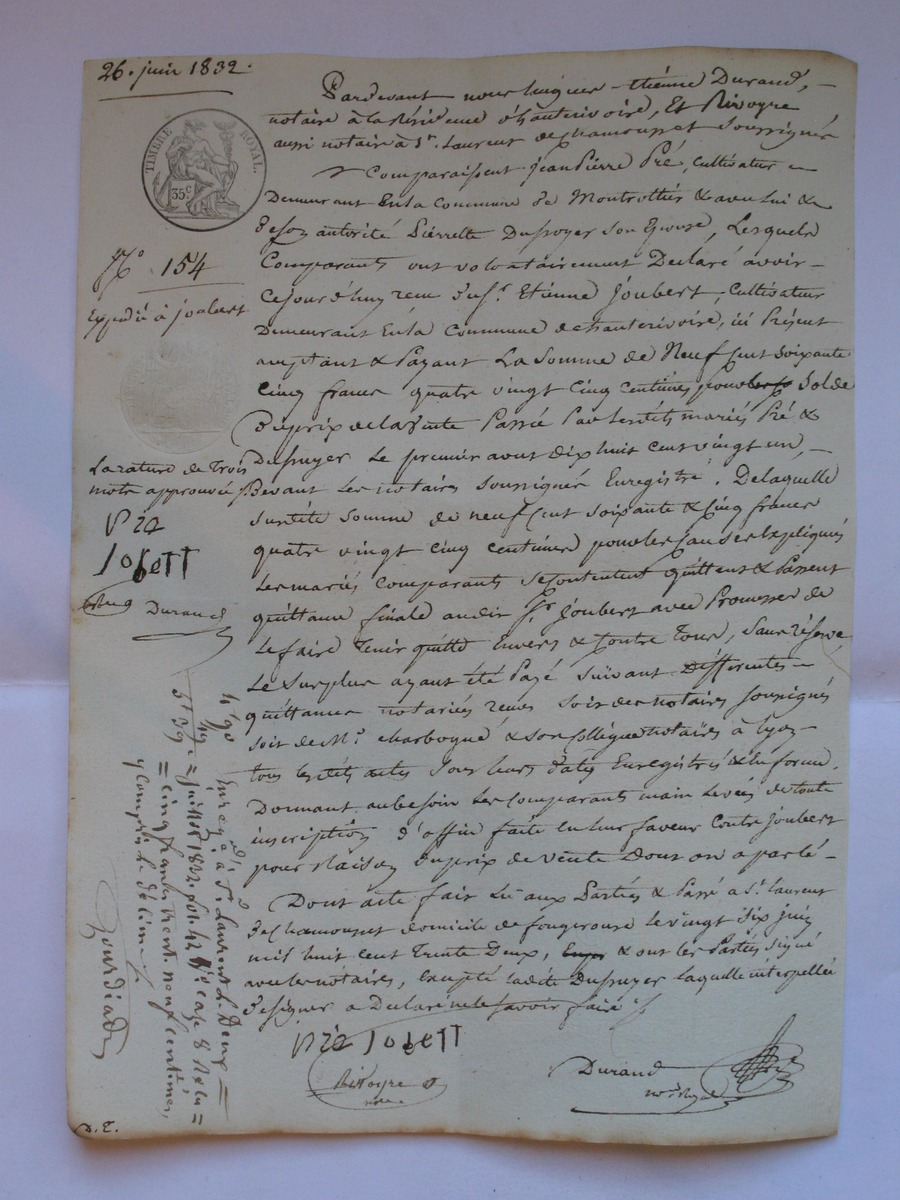 26. juin 1832.
TIMBRE ROYAL.
35 c
N.o 154
Expédié à joubert
La rature de Trois
mots approuvée
Pré
JobeTT
Durand
Pardevant nous Etienne Durand,
notaire à la Résidence d'hauterivoire, Et Rivoyre
aussi notaire à St. Laurent dechamousset Soussignés
Comparaissent jean Pierre Pré, Cultivateur
Demeurant Enla Commune de Montrottier & avec lui &
Deson autorité Pierrette Dupuyer Son Epouse, Lesquels
Comparants ont volontairement Declaré avoir
Cejourd'huy recu Dusr. Etienne Joubert, Cultivateur
Demeurant Enla Commune dehauterivoire, ici Présent
acceptant & Payant La Somme de Neuf Cent Soixante
Cinq francs quatre vingt Cinq Centimes Solde
Duprix delavente Passée Par lesdits mariés Pré &
Dupuyer Le premier aout Dix huit cent vingt un,
Devant Les notaires Soussignés Enregistré. Delaquelle
Susdite Somme de neuf Cent Soixante & Cinq francs
quatre vingt Cinq Centimes pour les Causes Expliquées
Les mariés Comparants Secontentent quittent & Passent
quittance finale audit Sr. Joubert avec Promesse de
Le faire Tenir quitte Envers & Contre Tous, Sans réserve
Le Surplus ayant été Payé Suivant Différentes
quittances notariées recues Soit des notaires Soussignés
Soit de Me. Charbogne & Son Collègue notaires à Lyon
tous lesdits actes Sous leurs dates Enregistrés & En forme.
Donnant aubesoin Les Comparants main Levée de toute
inscription d'office faite En leur faveur Contre Joubert
pour Raison Duprix de vente Dont on a parlé
Dont acte fait Lu aux Parties & Passé a St. Laurent
DeChamousset domicile de fougerouse le vingt Six juin
mil huit Cent Trente Deux, & ont les Parties Signé
avec les notaires, Excepté ladite Dupuyer laquelle interpellée
Designer a Déclaré nele Savoir faire
Pré JobeTT
Rivoyre
nore.
Durand
nre Royal
4 f 90
49
5 f 39
Enregé. à St. Laurent le Deux
juillet 1832. fol. 42 Case 8 Reçu
= Cinq francs trente neuf Centimes,
y Compris le décime
Gourdiat
D. T.